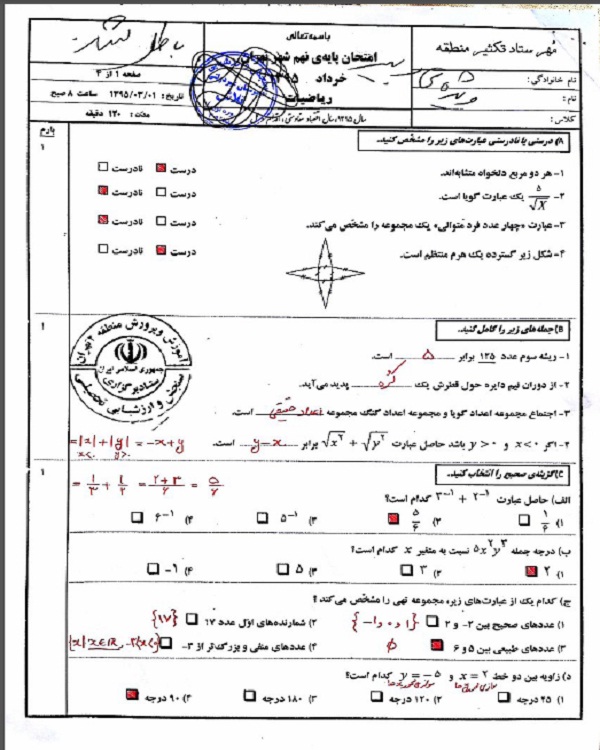 باسمه‌تعالی
مهر ستاد تکثیر منطقه
امتحان پایه‌ی نهم شهر تهران
خرداد
ریاضیات
باطل گشت
صفحه ۱ از ۴
تاریخ: ۱۳۹۵/۰۳/۰۱ ساعت ۸ صبح
مدت: ۱۲۰ دقیقه
نام خانوادگی:
نام:
کلاس:
بارم
A) درستی یا نادرستی عبارت‌های زیر را مشخص کنید.
۱
۱- هر دو مربع دلخواه متشابه‌اند. درست نادرست
۲- ۵/√X یک عبارت گویا است. درست نادرست
۳- عبارت «چهار عدد فرد متوالی» یک مجموعه را مشخص می‌کند. درست نادرست
۴- شکل زیر گسترده یک هرم منتظم است. درست نادرست
B) جمله‌های زیر را کامل کنید.
۱
۱- ریشه سوم عدد ۱۲۵ برابر ۵ است.
۲- از دوران نیم دایره حول قطرش یک کره پدید می‌آید.
۳- اجتماع مجموعه اعداد گویا و مجموعه اعداد گنگ مجموعه اعداد حقیقی است.
۴- اگر x<۰ و y>۰ باشد حاصل عبارت √x² + √y² برابر y-x است. =|x|+|y| = -x+y
x<۰ y>۰
C) گزینه‌ی صحیح را انتخاب کنید.
۱
الف) حاصل عبارت ۲⁻¹ + ۳⁻¹ کدام است؟ = ۱/۳ + ۱/۲ = ۲+۳/۶ = ۵/۶
۱) ۱/۶ ۲) ۵/۶ ۳) ۵⁻¹ ۴) ۶⁻¹
ب) درجه جمله ۵x²y³ نسبت به متغیر x کدام است؟
۱) ۲ ۲) ۳ ۳) ۵ ۴) ۶-
ج) کدام یک از عبارت‌های زیر، مجموعه تهی را مشخص می‌کند؟
۱) عددهای صحیح بین ۲- و ۲ {-۱ و ۰ و ۱} ۲) شمارنده‌های اول عدد ۱۷ {۱۷}
۳) عددهای طبیعی بین ۵ و ۶ ∅ ۴) عددهای منفی و بزرگ‌تر از ۳-
د) زاویه بین دو خط x = ۲ و y = -۵ کدام است؟
۱) ۴۵ درجه ۲) ۱۲۰ درجه ۳) ۱۸۰ درجه ۴) ۹۰ درجه
آموزش و پرورش منطقه
جمهوری اسلامی ایران
ستاد برگزاری
سنجش و ارزشیابی تحصیلی